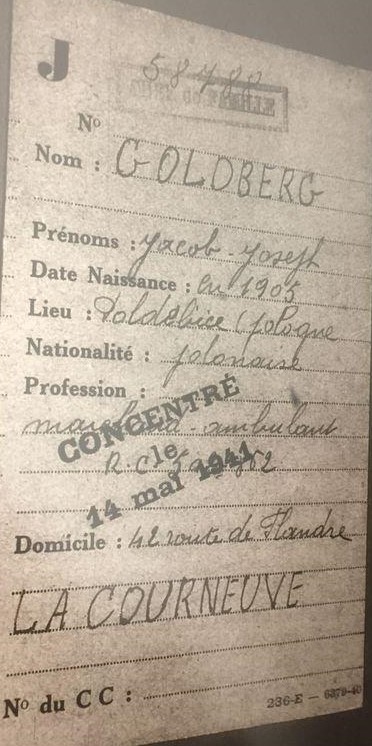 J
58788
CHEF de FAMILLE
No
Nom : GOLDBERG
Prénoms : Jacob - Joseph
Date Naissance : en 1905
Lieu : (Pologne
Nationalité : polonaise
Profession :
marchand-ambulant
CONCENTRÉ
le
14 mai 1941
R.C.
Domicile : 42 route de Flandre
LA COURNEUVE
No du CC :
236-E — 6379-40